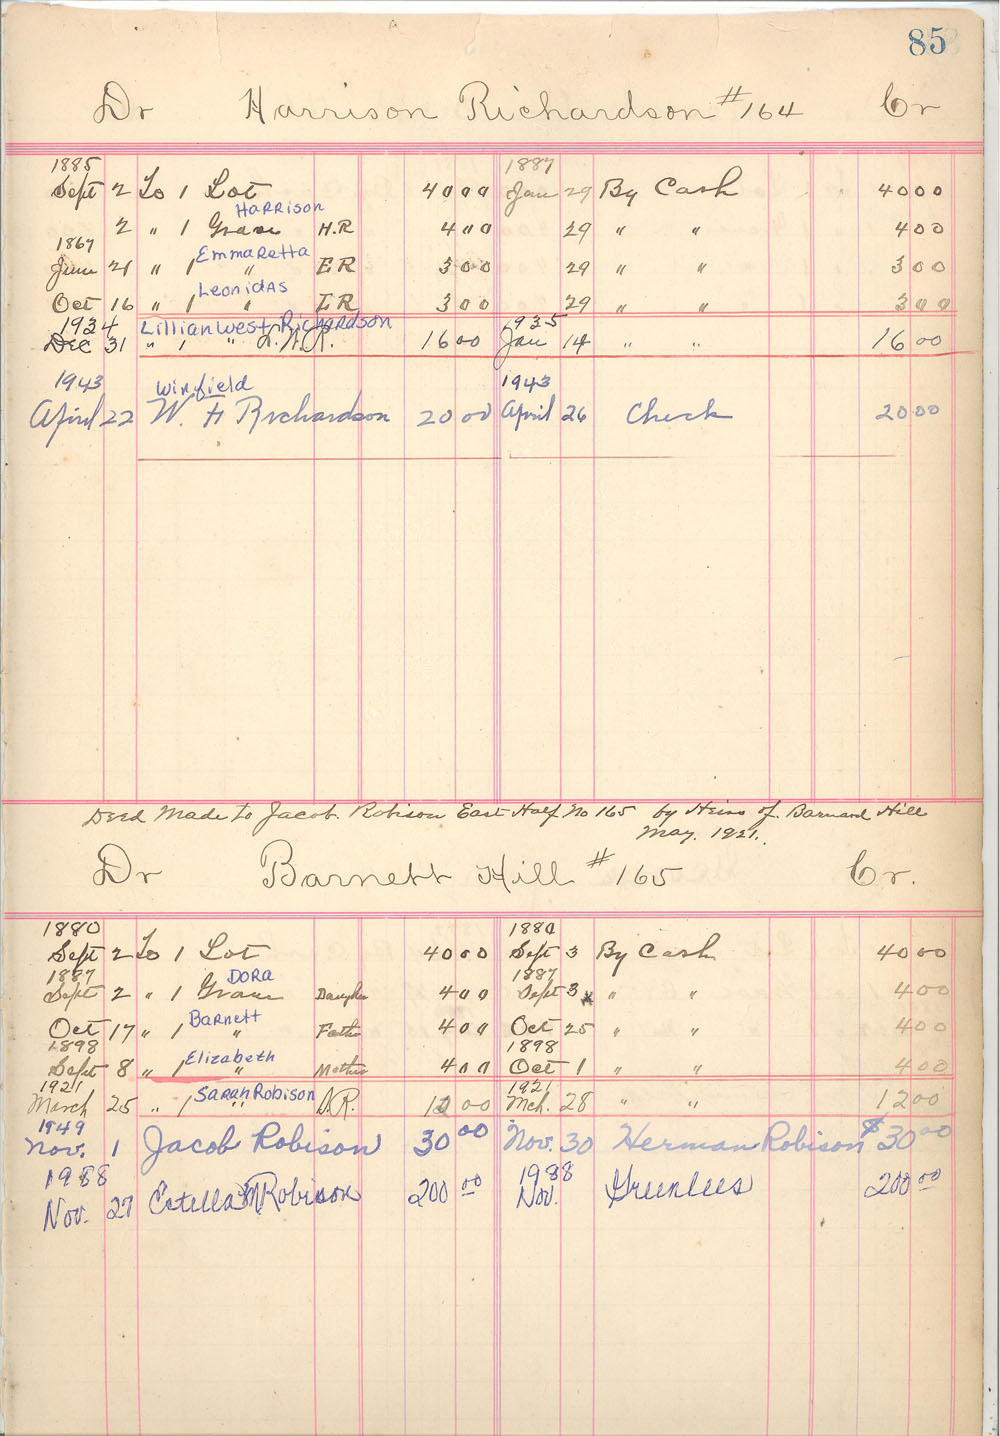 85
Dr Harrison Richardson #164 Cr
1885 1887
Sept 2 To 1 Lot 40 00 Jan 29 By Cash 40 00
Harrison
2 " 1 Grave H.R 4 00 29 " " 4 00
1867 Emmaretta
June 21 " 1 " ER 3 00 29 " " 3 00
Leonidas
Oct 16 " 1 " LR 3 00 29 " " 3 00
1934 Lillian West Richardson 1935
Dec 31 " 1 " L.W.R. 16 00 Jan 14 " " 16 00
1943 Winfield 1943
April 22 W. H Richardson 20 00 April 26 Check 20 00
Deed Made to Jacob Robison East Half No 165 by Heirs of Barnard Hill
May. 1921.
Dr Barnett Hill #165 Cr.
1880 1880
Sept 2 To 1 Lot 40 00 Sept 3 By Cash 40 00
1887 Dora 1887
Sept 2 " 1 Grave Daughter 4 00 Sept 3 " " 4 00
Barnett
Oct 17 " 1 " Father 4 00 Oct 25 " " 4 00
1898 Elizabeth 1898
Sept 8 " 1 " Mother 4 00 Oct 1 " " 4 00
1921 Sarah Robison 1921
March 25 " 1 " S.R. 12 00 Mch. 28 " " 12 00
1949
Nov. 1 Jacob Robison 30 00 Nov. 30 Herman Robison $30 00
1988 1988
Nov. 27 Estella M Robison 200 00 Nov. Greenlees 200 00